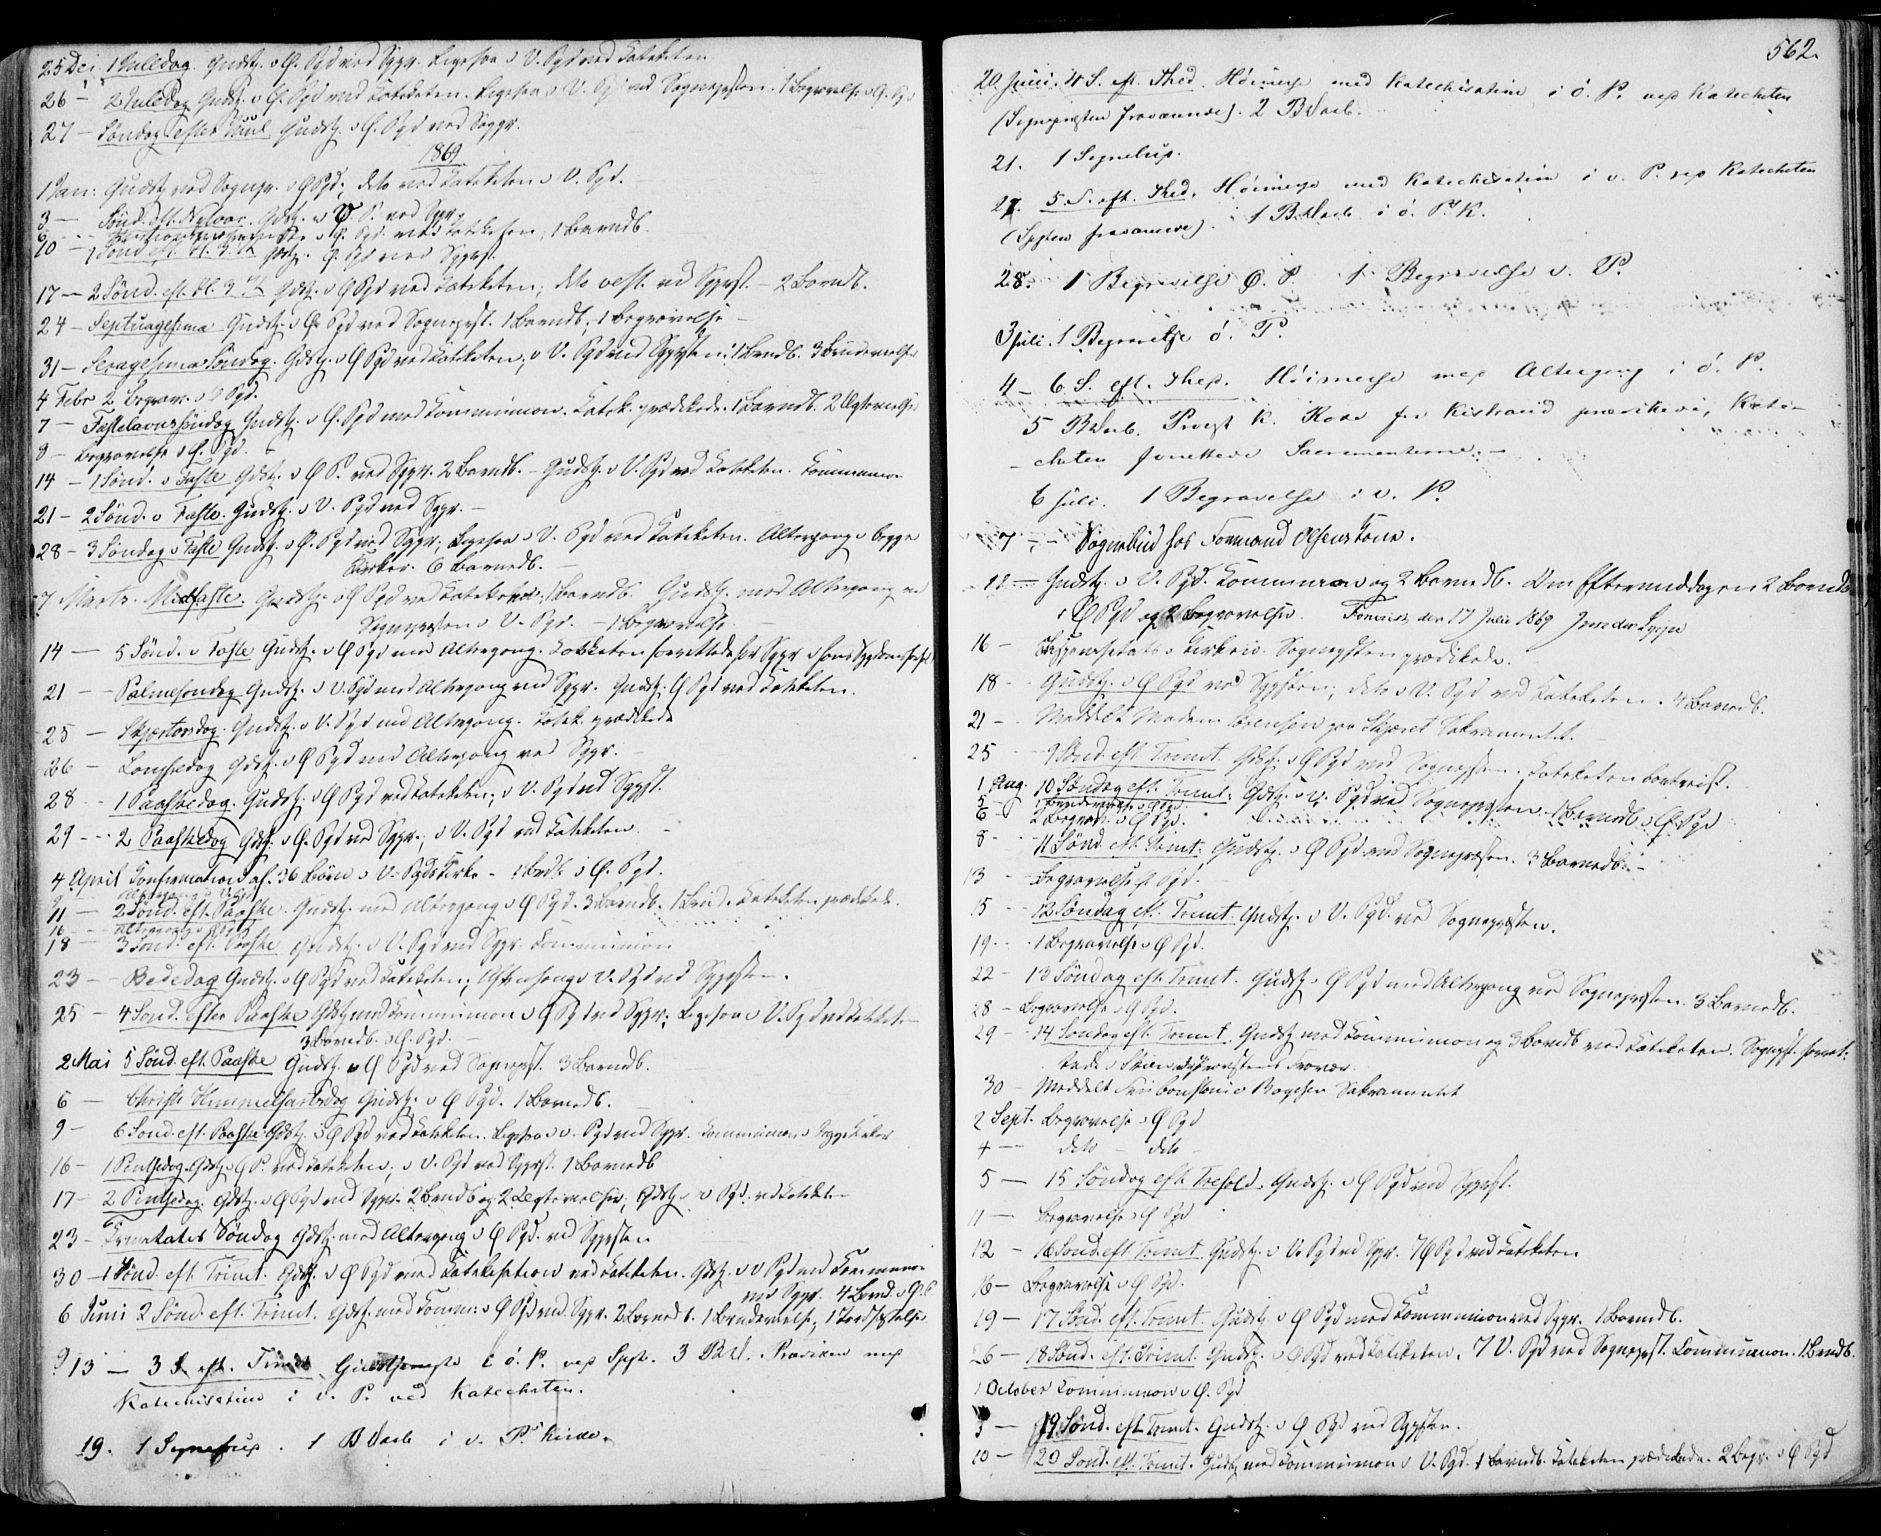 25 Dec. 1 Juledag. Gudstj. i Ø. Pgd ved Sgpr. Ligesaa i V. Pgd ved Kateketen
26 – 2 Juledag Gudstj. i Ø. Pgd ved Kateketen. Ligesaa i V. Pgd ved Sognepresten. 1 Begravelse i Ø. Pgd
27 – Søndag efter Juul Gudstj. i Ø. Pgd ved Sogpr.
1869
1 Jan: Gudstj. ved Sognepr. i Ø Pgd; dito ved Kateketen i V. Pgd.
3 – Sønd. eft. Nytaar. Gdstj. i V. P. ved Spr.
6 – Gdstj. i Ø. Pgd. ved Kateketen, 1 Barnedb.
10 – 1 Sønd eft. H. 3 K. Gdstj. Ø. Pgd ved Sgprst.
17 – 2 Sønd. eft. Hl. 3 K. Gdstj. i Ø Pgd ved Kateketen; dito vest. ved Sgprst. – 2 Barnedb.
24 – Septuagesima Gudstj. i Ø Pgd ved Sognepst. 1 Barnedb. 1 Begravelse –
31 – Sexagesima Søndag. Gdstj. i Ø Pgd ved Kateketen, i V. Pgd ved Sgprsten. 1 Barnedb. 3 Brudevielser
4 Febr 2 Begrav. i Ø Pgd.
7 – Fastelavnssøndag Gudstj. i Ø. Pgd med Kommunion. Katek. prædikede. 1 Barnedb. 2 Ægtevielser
9 – Begravelse i Ø. Pgd.
14 – 1 Sønd. i Faste Gdstj. i Ø P. ved Sgpr. 2 Barnedb. – Gudstj. i V. Pgd ved Kateketen. Kommunion
21 – 2 Sønd. i Faste. Gudstj. i V. Pgd ved Sgpr. –
28 – 3 Søndag i Faste Gudstj. i Ø. Pgd ved Sgpr. Ligesaa i V. Pgd ved Kateketen. Altergang i begge
Kirker. 6 Barnedb. –
7 Marts. Midfaste. Gudstj. i Ø Pgd ved Kateketen; 1 Barnedb. Gudstj. med Altergang ved
Sognepresten i V. Pgd. – 1 Begravelse. –
14 – 5 Sønd. i Faste Gudstj. i Ø Pgd med Altergang. Kateketen forrettede for Sgpr i hans Sygdomsforfald
21 – Palmesøndag Gudstj. i V Pgd med Altergang ved Sgpr. Gudstj. Ø Pgd ved Kateketen.
25 – Skjærtorsdag. Gudstj. i V. Pgd med Altergang. Katek. prædikede
26 – Langfredag Gdstj. i Ø Pgd med Altergang ved Sgpr. –
28 – 1 Paaskedag. Gudstj. i Ø Pgd ved Kateketen; i V. Pgd ved Sgprst.
29 – 2 Paaskedag Gdstj. i Ø. Pgd ved Sgpr.; i V. Pgd ved Kateketen. –
4 April Konfirmation af. 36 Børn i V. Pgds Kirke – 1 Brdb. i Ø. Pgd.
11 – 2 Sønd. eft. Paaske. Gudstj. med Altergang i Ø Pgd. 3 Barnedb. Kateketen prædiked.
18 – 3 Sønd. eft. Paaske Gudstj. i V. Pgd ved Sgpr. Kommunion
23 – Bededag Gudstj. i Ø Pgd ved Kateketen; Aftensang i V. Pgd ved Sgprsten.
25 – 4 Sønd. efter Paaske Gdstj. med Kommunion i Ø Pgd ved Sgpr; Ligesaa i V. Pgd ved Kateketen
3 Barnedb. i Ø. Pgd. –
2 Mai 5 Sønd. eft. Paaske Gudstj. i Ø Pgd ved Sognepst. 3 Barnedb.
6 – Christi Himmelfartsdag Gudstj. i Ø Pgd. 1 Barnedb.
9 – 6 Sønd. eft. Paaske Gdstj. i Ø Pgd ved Kateketen. Ligesaa i V. Pgd ved Sgpr. Kommunion i begge Kirker
16 – 1 Pintsedag. Gdstj. i Ø P. ved Kateketen, i V. Pgd ved Sgprst. 1 Barnedb
17 – 2 Pintsedag. Gdstj. i Ø Pgd ved Sgpr. 2 Barndb og 2 Ægtevielser; Gdstj. i V. Pgd. ved Kateketen
23 – Trinitatis Søndag Gdstj. med Altergang i Ø Pgd. ved Sgprsten
30 – 1 Sønd. eft. Trinit. Gdstj. i Ø Pgd med Katekisation ved Kateketen. Gdstj. i V Pgd med Kommunion
ved Sgpr. 4 Barnd. i Ø.
6 Juni 2 Sønd. eft. Trinit. Gdstj. med Komm: i Ø Pgd ved Sgpr. 2 Barnedb. 1 Brudevielse, 1 Jordfæstelse
13 – 3 S. eft. Trinit. Gudstjeneste i ø. P. ved Sgpt. 3 Bd. Prædiken med
Katechisation i v. P. ved Katecheten.
19. 1 . 1 B Daab i v. P. Kirke.
562.
20 Juni. 4 S. ef. Thed. Høimesse med Katechisation i ø. P. ved Katecheten
(Sognepresten fraværende). 2 B Daab.
21. 1
27. 5. S. eft. Thed. Høimesse med Katechisation i v. P. ved Katecheten
(Spsten fraværende). 1 B. Daab i ø. P. K.
28. 1 Begravelse Ø. P. 1 Begravelse v. P.
3 Juli. 1 Begravelse ø. P.
4 – 6 S. eft. thed. Høimesse med Altergang i ø. P.
5 B Daab. Provst K. fra Kistrand prædikede, Kate-
cheten forrettede Sacramenterne. –
6 Juli. 1 Begravelse i v. P.
7 – Sognebud hos Formand Olsens Kone.
12 – Gudstj. i V. Pgd. Kommunion og 2 Barnedb. Om Eftermiddagen 2 Barnedb
i Ø Pgd og 2 Begravelser. den 17 Juli 1869
16 – i Kirken. Sognepsten prædikede.
18 – Gudstj. i Ø Pgd ved Sgpsten; dito i V. Pgd ved Kateketen. 4 Barnedb.
21 – Meddelt Madam Sørensen paa Skjæret Sakramentet. –
25 – 9 Sønd. eft. Trinit. Gdstj. i Ø Pgd ved Sognepsten. Kateketen bortreist.
1 Aug. 10 Søndag eft. Trinit. Gdstj. i V. Pgd ved Sognepresten. 1 Barnedb. i Ø. Pgd
5 – 1 Brudevielse i Ø Pgd.
6 – 2 Begrav. i Ø Pgd.
8 – 11 Sønd. eft. Trinit. Gudstj. i Ø Pgd ved Sognepresten. 3 Barnedb. –
13 – Begravelse Pgd. –
15 – 12 Søndag eft. Trinit. Gudstj. i V. Pgd. ved Sognepresten.
19 – 1 Begravelse i Ø Pgd.
22 – 13 Søndag eft. Trinit. Gudstj. i Ø Pgd med Altergang ved Sognepresten. 3 Barnedb.
28 – Begravelse i Ø Pgd.
29 – 14 Søndag eft. Trinit. Gudstj. med Kommunion og 3 Barnedb ved Kateketen. Sognepst. forret-
tede i Skien
30 – Meddelt Boyesen Sakramentet
2 Sept. Begravelse i Ø Pgd
4 – dito – dito –
5 – 15 Søndag eft. Trefold. Gudstj. i Ø Pgd ved Sgprst.
11 – Begravelse i Ø Pgd
12 – 16 Sønd. eft Trinit. Gudstj. i V. Pgd ved Spr. I Ø Pgd ved Kateketen
16 – Begravelse i Ø Pgd.
19 – 17 Sønd. eft. Trinit. Gudstj. i Ø Pgd med Kommunion ved Sgpr. 1 Barnedb.
26 – 18 Sønd. eft. Trinit. Gudstj. i Ø Pgd ved Kateketen. I V. Pgd ved Sognepst. Kommunion. 1 Barndb.
1 October Kommunion i Ø. Pgd
3 – 19 Sønd. eft. Trinit. Gudstj. i Ø Pgd ved Sgpsten.
10 – 20 Sønd. eft. Trinit. Gudstj. med Kommunion i V. Pgd. 1 Barnedb. Kateketen prædikede. 2 Begr. i Ø Pgd